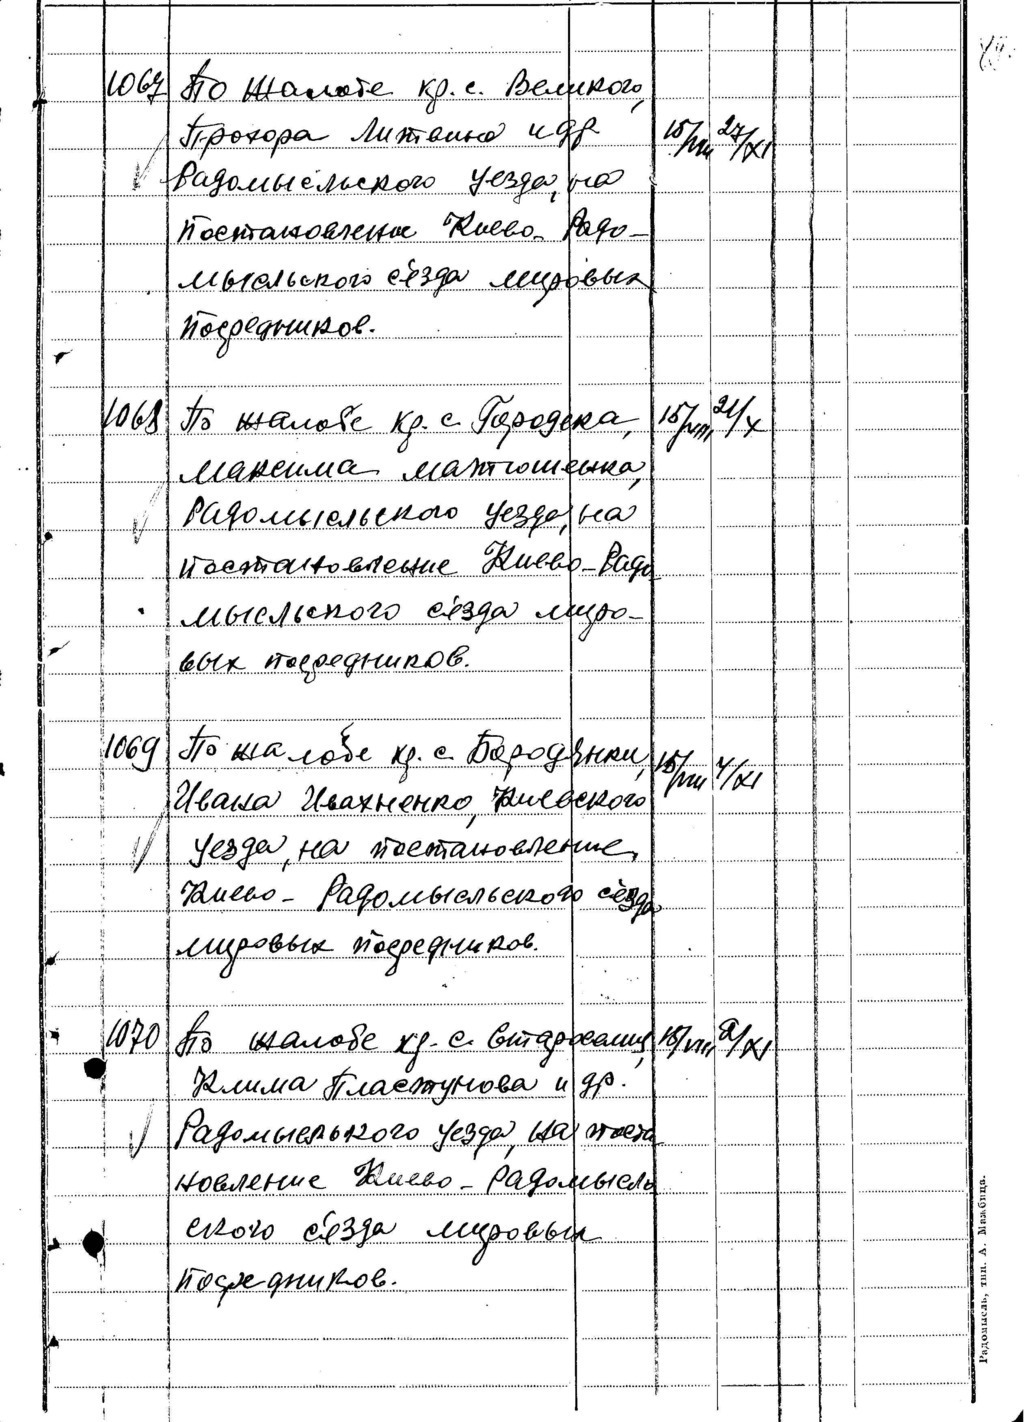 1067 По жалобе кр. с. Великого,
Прохора Литвина и др. 15/VIII 27/XI
Радомысльского уезда, на
постановление Киево-Радо-
мысльского съезда мировых
посредников.
1068 По жалобе кр. с. Городска, 15/VIII 21/X
Максима Матюшенка,
Радомысльского уезда, на
постановление Киево-Радо
мысльского съезда миро-
вых посредников.
1069 По жалобе кр. с. Бородянки, 15/VIII 4/XI
Ивана Ивахненко, Киевского
уезда, на постановление
Киево-Радомысльского съезда
мировых посредников.
1070 По жалобе кр. с. Старосельц, 15/VIII 9/XI
Клима Пластунова и др.
Радомысльского уезда, на поста
новление Киево-Радомысль
ского съезда мировых
посредников.
Радомысль, тип. А. Мажбица.